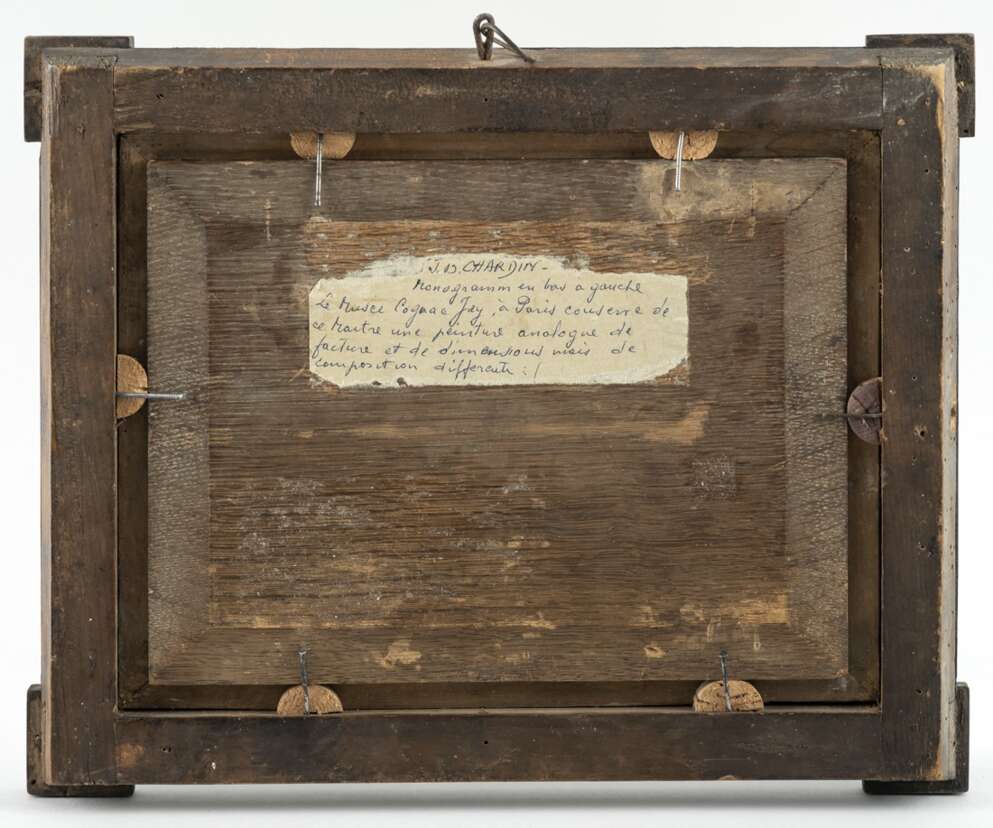 J.B. CHARDIN -
Monogramm en bas a gauche
Le Musee Cognac Jay, à Paris conserve de
ce Maitre une peinture analogue de
facture et de dimensions mais de
composition differente : /